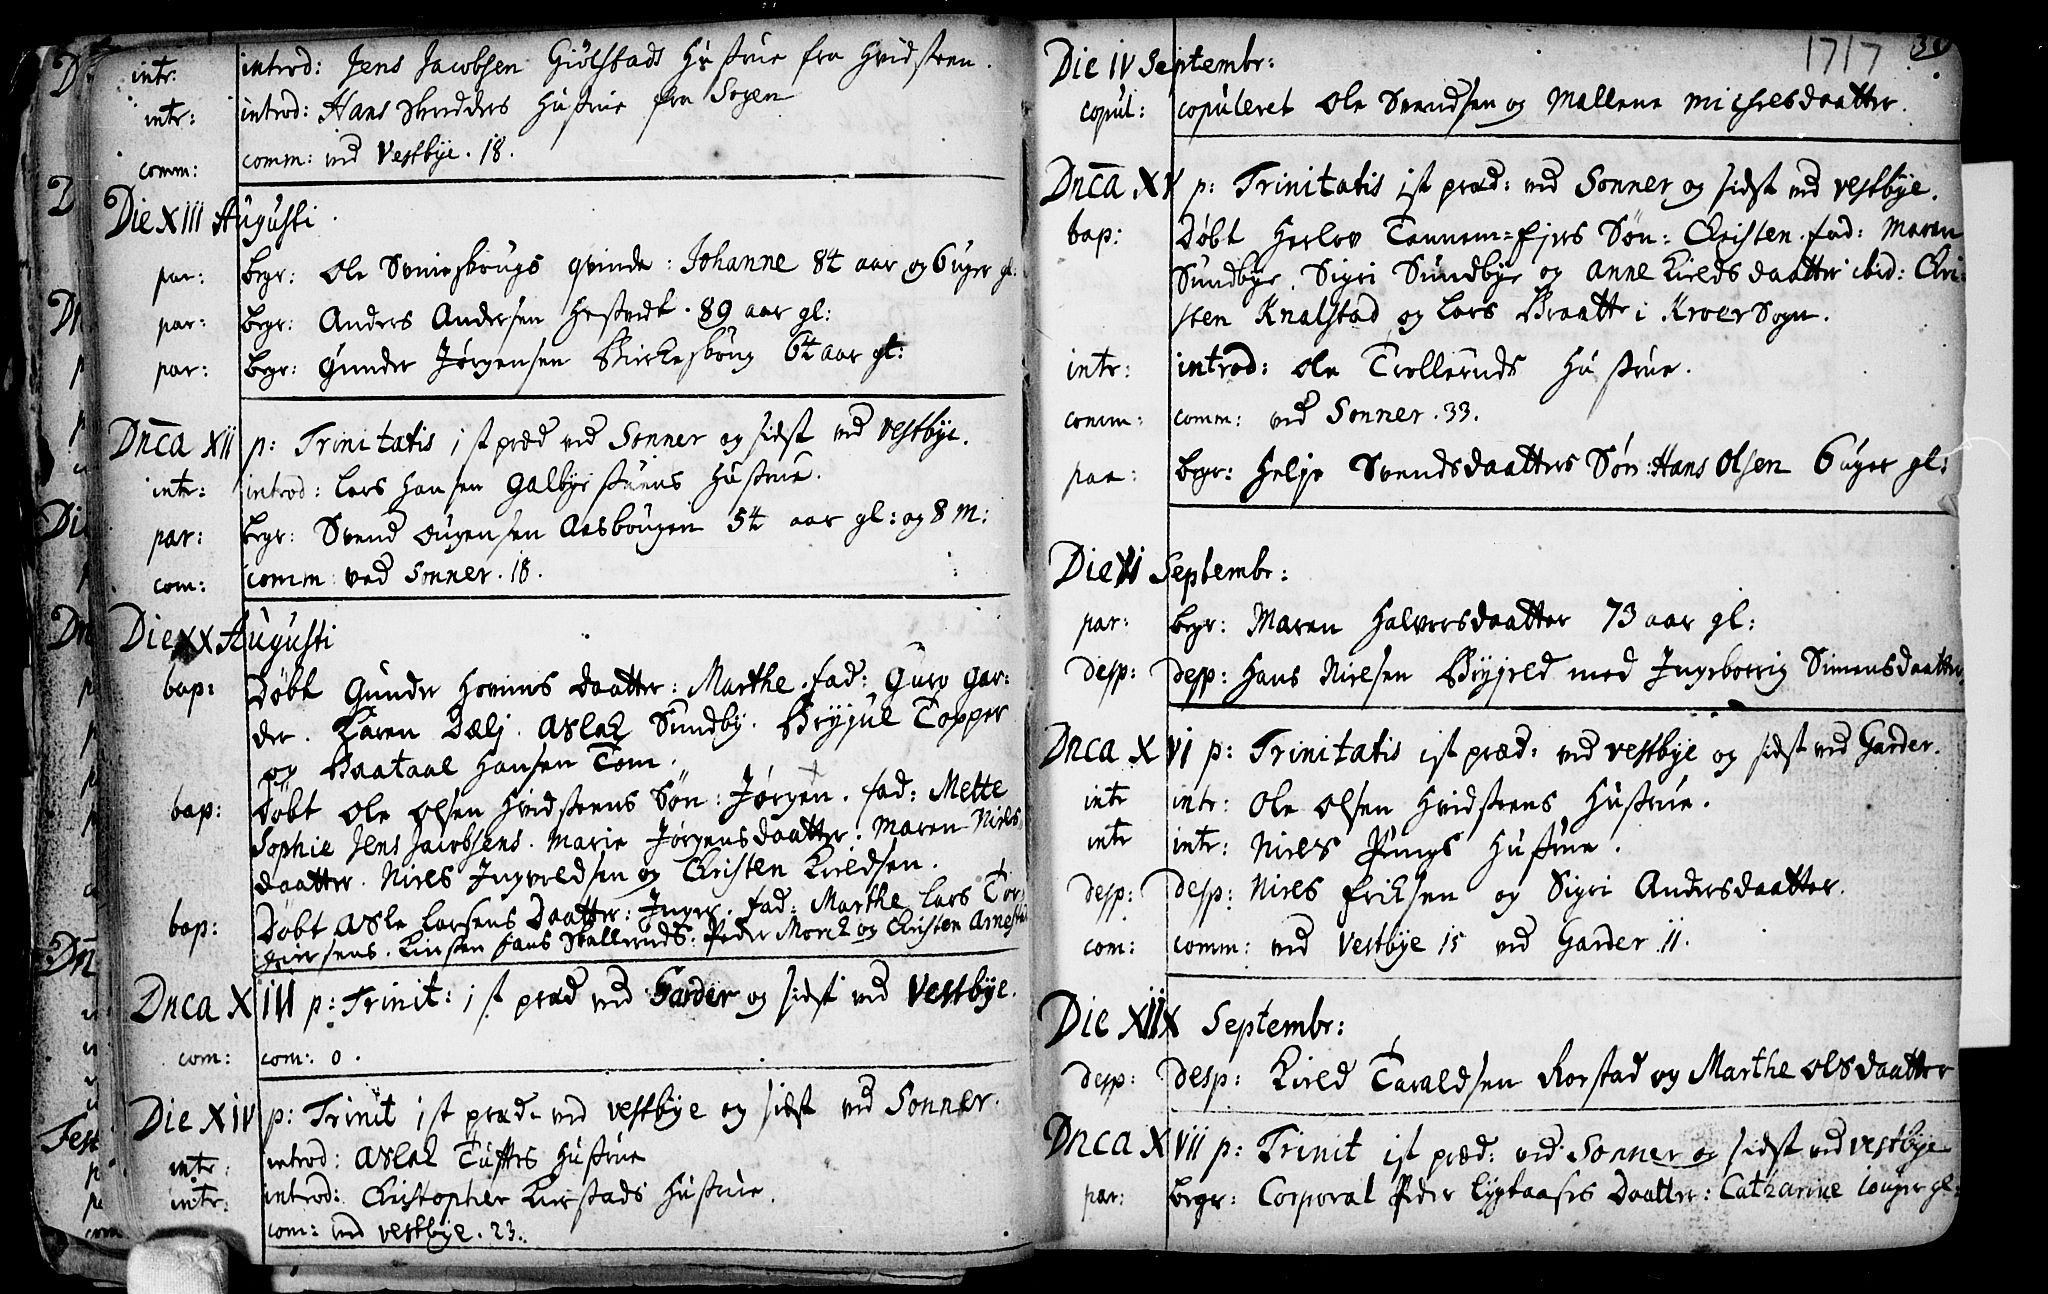 intr: introd: Jens Jacobsen Giølstads Hustrue fra Hvidsteen.
intr: introd: Hans Skredders Hustrue fra Sogen
comm: comm: ved Vestbye. 18.
Die XIII Augusti.
par: begr: Ole Sveniesbougs qvinde: Johanne 84 aar og 6 uger gl:
par: begr: Anders Andersen Hestvedt. 89 aar gl:
par: begr: Gunder Jørgensen Birkesboug 64 aar gl:
Dnca XII p: Trinitatis ist præd ved Sonner og sidst ved Vestbye.
intr: introd: Lars Hansen Galbye stuens Hustrue.
par: begr: Svend Ougensen Aasbougen 54 aar gl: og 8 M:
com: comm: ved Sonner. 18.
Die XX Augusti
bap: Døbt Gunder Hovums Daatter: Marthe. fad: Guro Gar:
der. Karen Dælj. Aslak Sundby. Bryjul Topper
og Baataal Hansen Tom.
bap: Døbt Ole Olsen Hvidsteens Søn: Jørgen. fad: Mette
Sophie Jens Jacobsens. Marie Jørgensdaatter. Maren Niels
daatter. Niels Ingvoldsen og Christen Kieldsen.
bap: Døbt Asle Larsens Daatter: Inger. fad: Marthe Lars Tor
giersens. Hans Skalleruds. Peder Morck og Christen Arnestad
Dnca XIII p: Trinit: ist præd ved Garder og sidst ved Vestbye.
com: com: 0.
Die XIV p: Trinit ist præd. ved Vestbye og sidst ved Sonner.
intr: introd: Aslak Tufftes Hustrue
intr: introd: Christopher Kierstads Hustrue.
com: ved Vestbye. 23.
1717
Die IV Septembr:
copul: copuleret Ole Svendsen og Mallene Michelsdaatter.
Dnca XV p: Trinitatis ist præd: ved Sonner og sidst ved Vestbye.
bap: Døbt Herlov Tannem=Ejers Søn: Christen. fad: Maren
Sundbye. Sigri Sundbye og Anne Kieldsdaatter ibid: Chri-
sten Knalstad og Lars Braatte i Kroer Sogn.
intr: introd: Ole Trolleruds Hustrue.
comm: comm: ved Sonner. 33.
par: begr: Helje Svendsdaatters Søn: Hans Olsen 6 uger gl:
Die XI Septembr:
par: begr: Maren Halvorsdaatter 73 aar gl:
desp: desp: Hans Nielsen Bryjeld med Ingeborrig Simensdaatter.
Dnca XVI p: Trinitatis ist præd: ved Vestbye og sidst ved Garder.
intr intr: Ole Olsen Hvidsteens Hustrue.
intr intr: Niels Pungs Hustrue.
desp: desp: Niels Eriksen og Sigri Andersdaatter.
com: comm: ved Vestbye 15 ved Garder 11.
Die XIIX Septembr:
desp: desp: Kield Taraldsen Rorstad og Marthe Olsdaatter
Dnca XVII p: Trinit ist præd: ved Sonner og sidst ved Vestbye
par: begr: Corporal Peder Daatter: Catharine 10 uger gl: